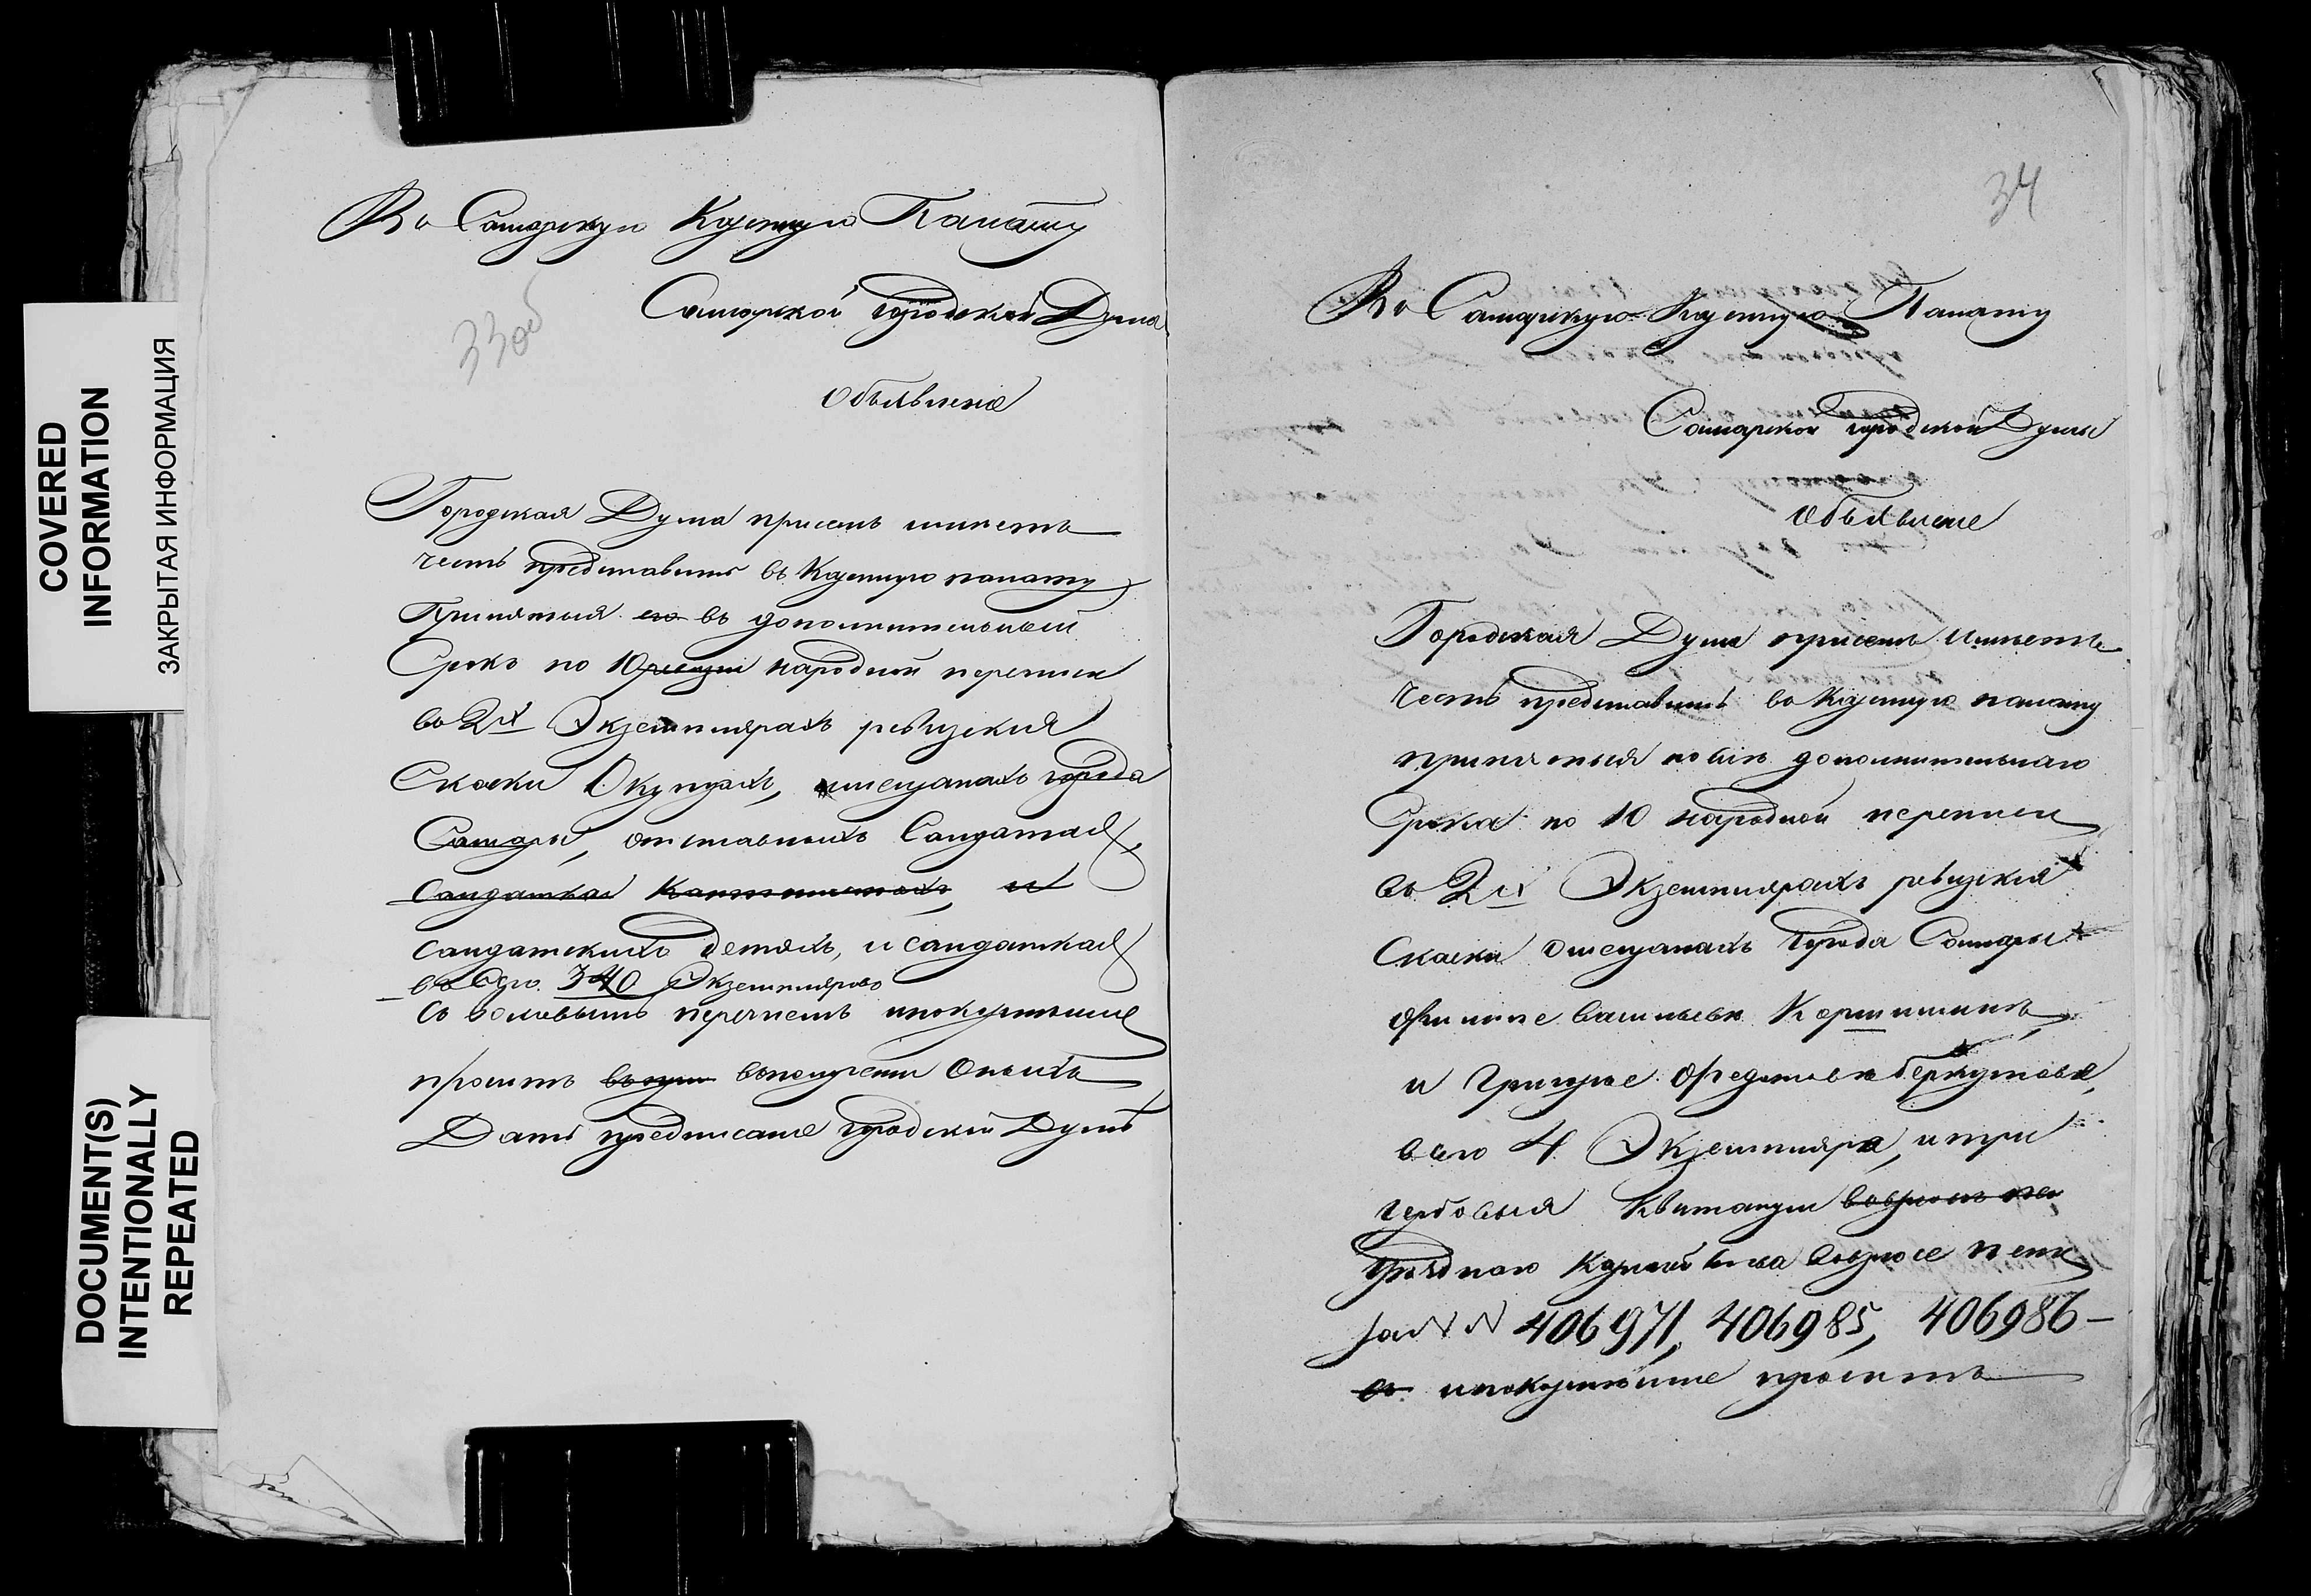 COVERED
INFORMATION
ЗАКРЫТАЯ ИНФОРМАЦИЯ
DOCUMENT(S)
INTENTIONALLY
REPEATED
Въ Самарскую Казенную Палату
33об
Самарской городской Думы
Объявление
Городская Дума при семъ имѣетъ
честь представить въ Казенную палату
Принятыя въ дополнительный
Срокъ по 10 ревизіи народной переписи
въ 2х Экземплярахъ ревизския
Скаски О купцахъ, мещанахъ города
Самары, отставныхъ Салдатахъ,
Салдатках и
салдатскихъ детяхъ, и салдатках
въ 340 Экземпляровъ
Со перечнемъ и покорнѣйше
проситъ въ получении Оныхъ
Дать предписание городской Думѣ
34
Въ Самарскую Казенную Палату
Самарской городской Думы
Объявление
Городская Дума при семъ имѣетъ
честь представить въ Казенную палату
принятыя после дополнительнаго
Срока по 10 народной переписи
въ 2х Экземплярахъ ревизския
Скаски О мещанахъ города Самары
Филиппе Васильеве
и Григорье Федотове
всего 4 Экземпляра, и три
Квитанции
Уѣзднаго Казначейства О взносе пени
за N N 406971, 406985, 406986 —
въ и покорнѣйше проситъ